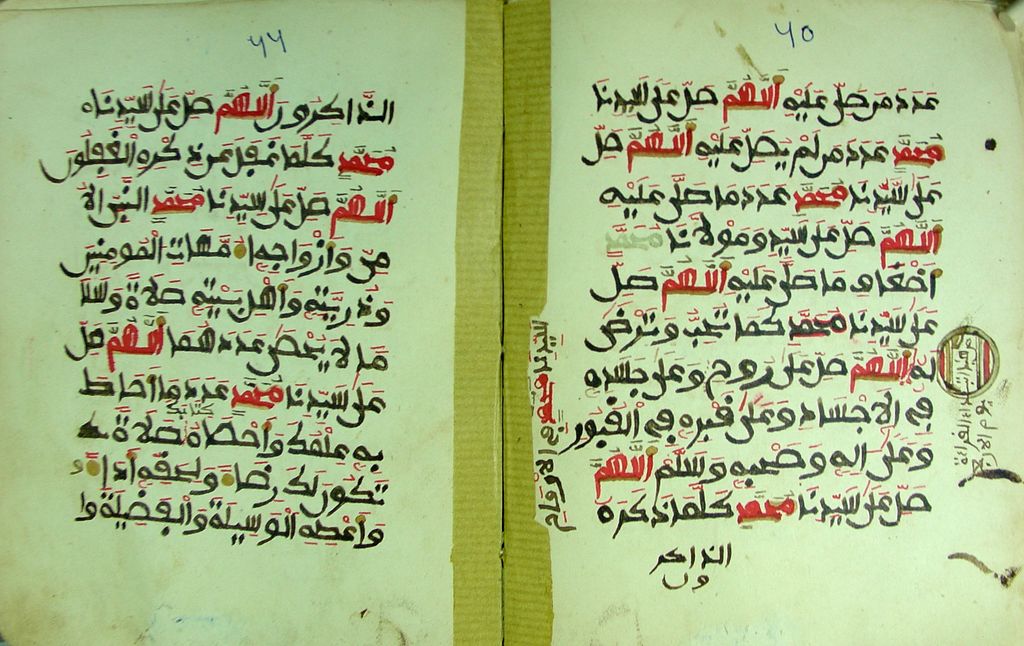 ٦٥
عدد من صل عليه اللهم صل على سيدنا
محمد عدد من لم يصل عليه اللهم صل
على سيدنا محمد عدد ما صلى عليه
اللهم صل على سيد ومولانا محمد
اضعاف ما صلى عليه اللهم صل
على سيدنا محمد كما تحب وترضى
له اللهم صل على روح وعلى جسده
في الاجساد وعلى قبره في القبور
وعلى اله وصحبه وسلم اللهم
صل على سيدنا محمد كلما ذكره
الذاكر
ون
سيدنا محمد في الارواح
٦٦
الذاكرون اللهم صل على سيدنا
محمد كلما غفل عن ذكره الغفلون
اللهم صل على سيدنا محمد النبي الا
مي وازواجه امهات المومنين
وذريته واهل بيته صلاة وسلا
ما لا يحصى عددهما اللهم صل
على سيدنا محمد عدد ما احاط
به علمك واحصاه كتابك صلاة
تكون لك رضاء ولحقه اداء
واعطه الوسيلة والفضيلة وا